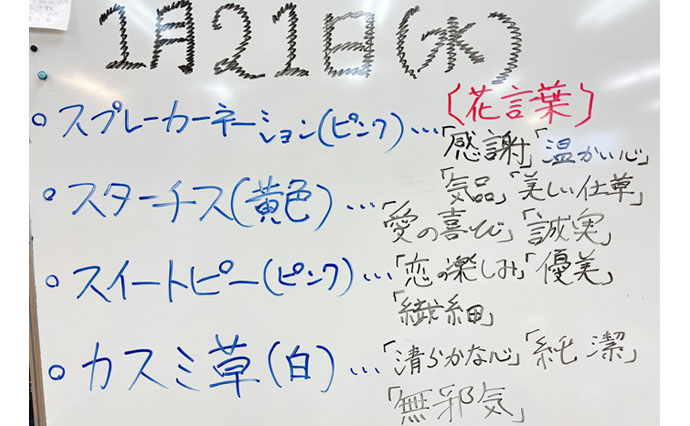 1月21日(水)
〔花言葉〕
・スプレーカーネーション(ピンク)…「感謝」「温かい心」
「気品」「美しい仕草」
・スターチス(黄色)…「愛の喜び」「誠実」
・スイートピー(ピンク)…「恋の楽しみ」「優美」
「繊細」
・カスミ草(白)…「清らかな心」「純潔」
「無邪気」